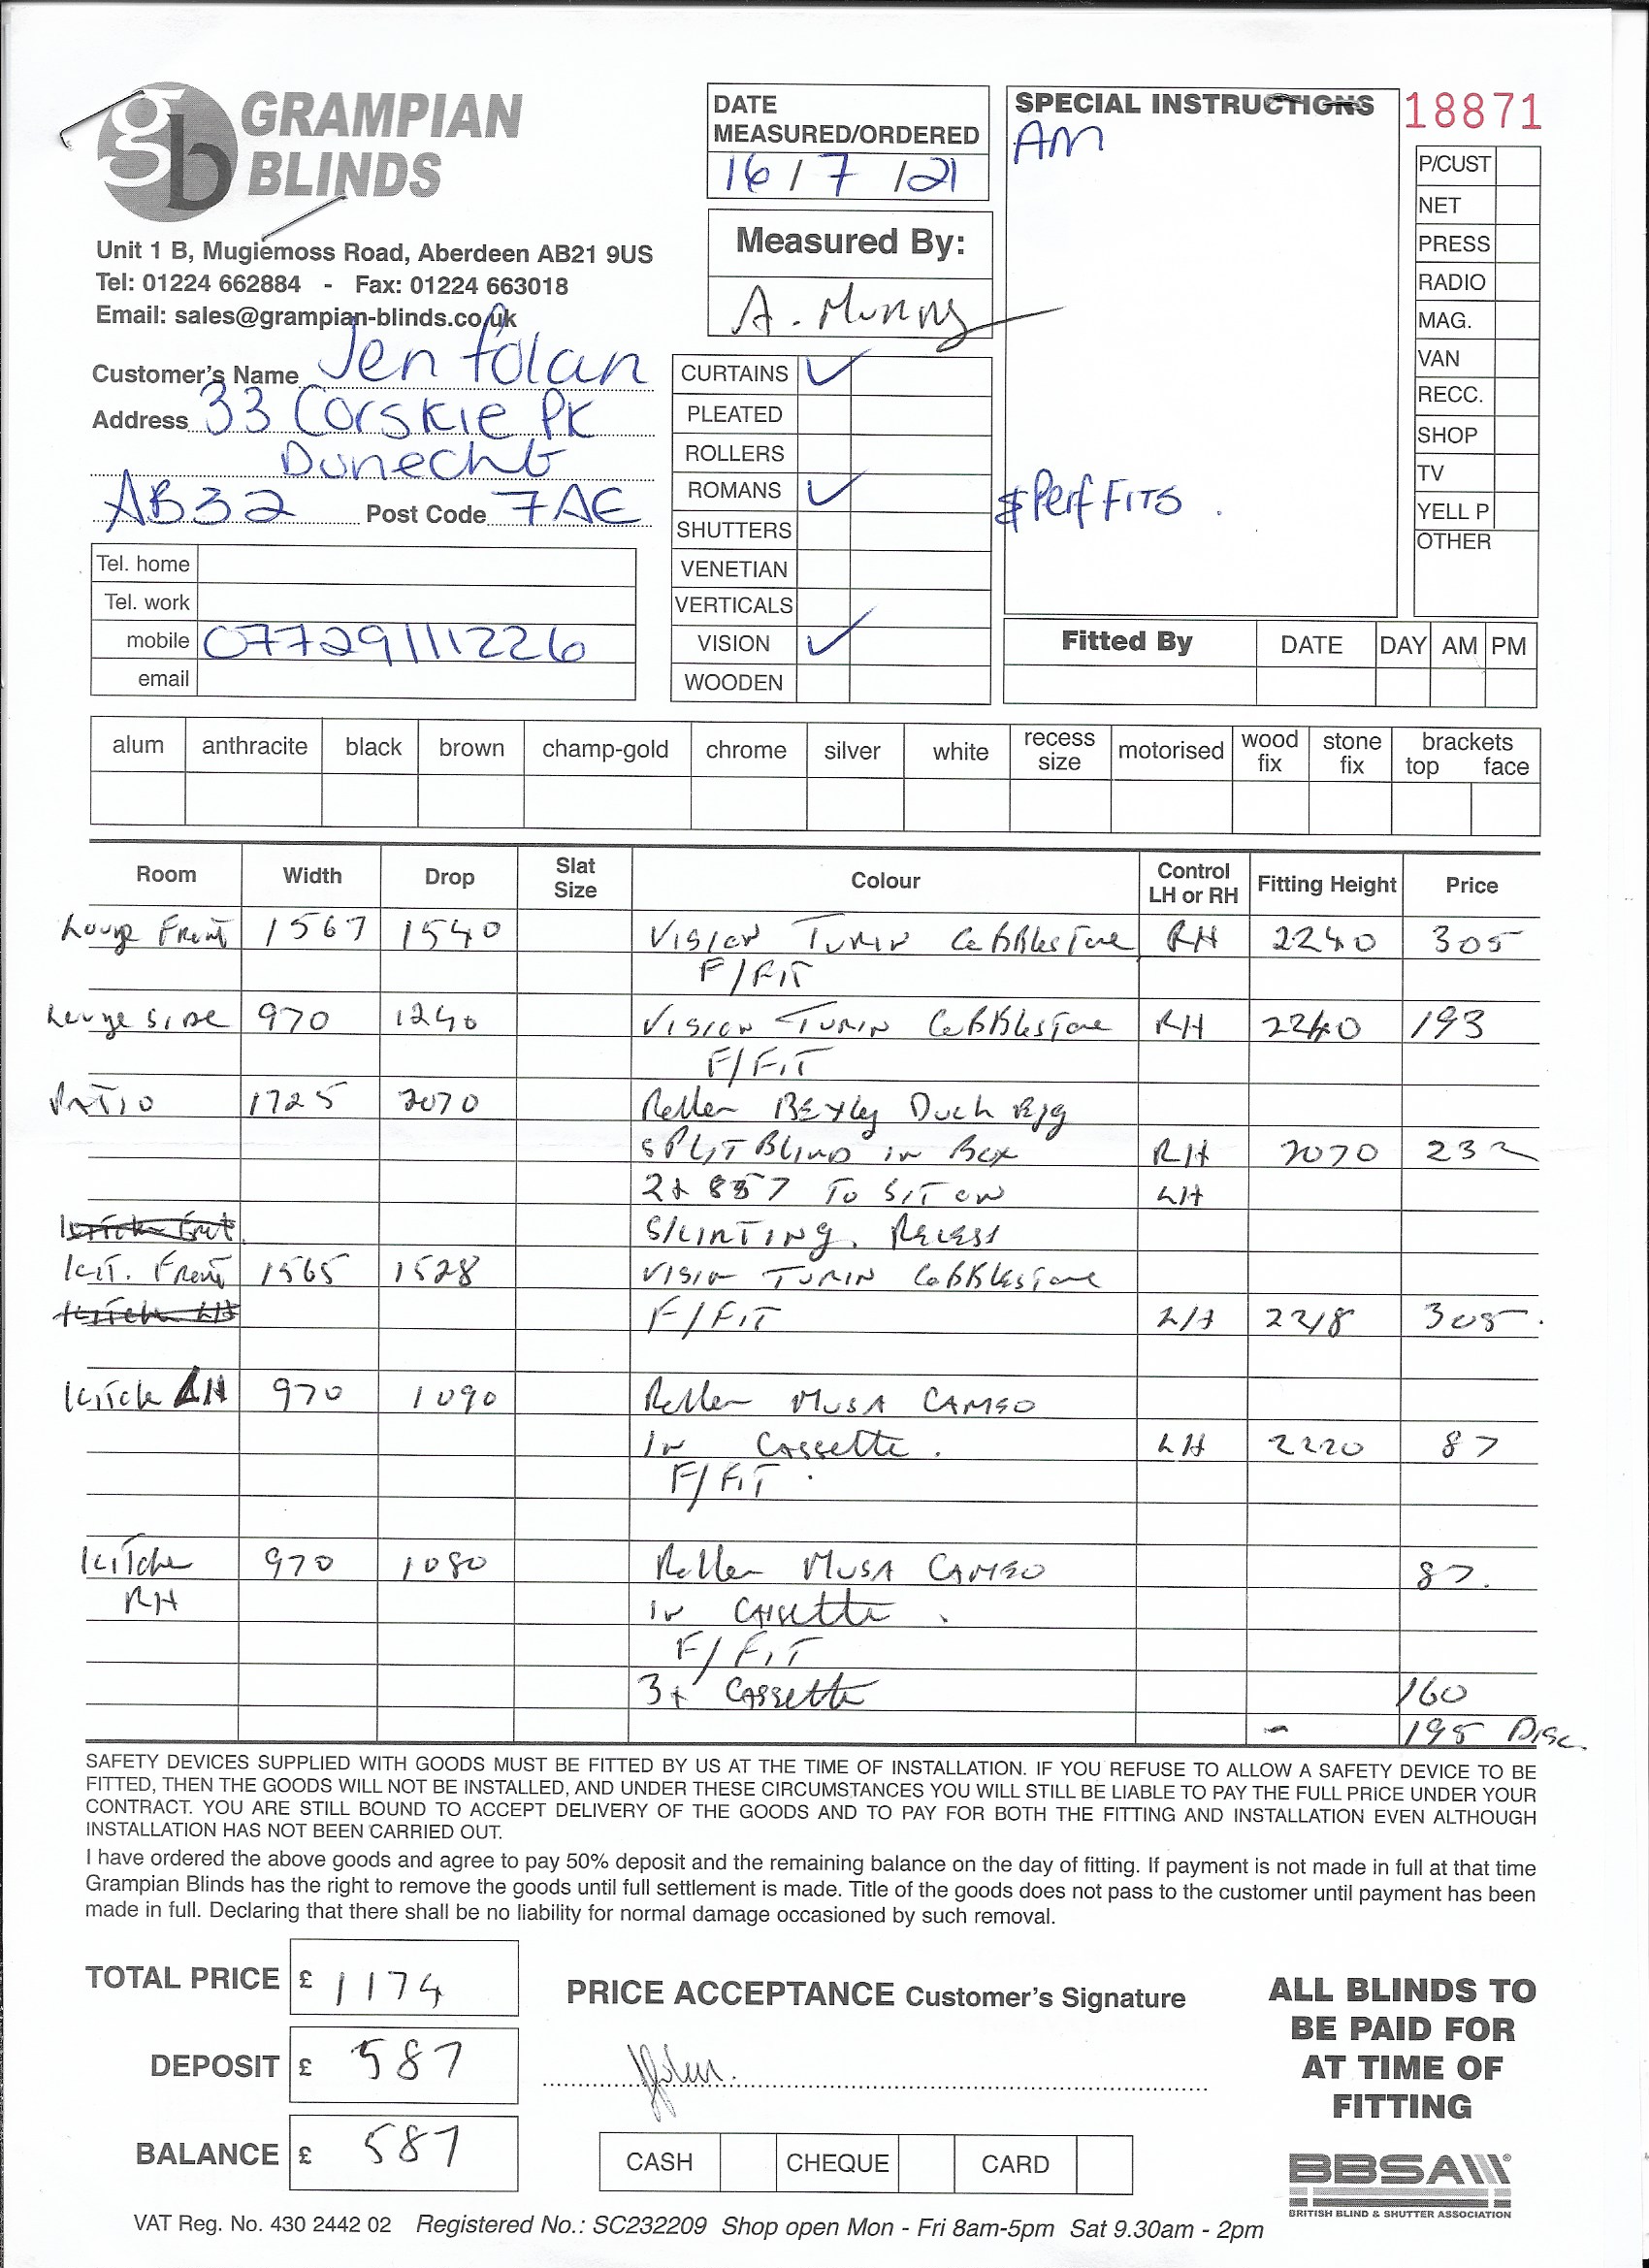 GRAMPIAN
BLINDS
Unit 1 B, Mugiemoss Road, Aberdeen AB21 9US
Tel: 01224 662884 - Fax: 01224 663018
Email: sales@grampian-blinds.co.uk
Customer's Name Jen Folan
Address 33 Corskie Pk
Dunecht
AB32 Post Code 7AE
Tel. home
Tel. work
mobile 07729111226
email
DATE
MEASURED/ORDERED
16/7/21
Measured By:
A. Murray
CURTAINS ✓
PLEATED
ROLLERS
ROMANS ✓
SHUTTERS
VENETIAN
VERTICALS
VISION ✓
WOODEN
SPECIAL INSTRUCTIONS
AM
Perf FITS.
18871
P/CUST
NET
PRESS
RADIO
MAG.
VAN
RECC.
SHOP
TV
YELL P
OTHER
Fitted By DATE DAY AM PM
alum anthracite black brown champ-gold chrome silver white recess size motorised wood fix stone fix brackets top face
Room Width Drop Slat Size Colour Control LH or RH Fitting Height Price
Lounge Front 1567 1540 Vision Turin Cobblestone RH 2240 305
F/FIT
Lounge Side 970 1240 Vision Turin Cobblestone RH 2240 193
F/FIT
Patio 1725 2070 Roller Bexley Duck Egg
Split Blind in Box RH 2070 232
2x 857 To Sit on LH
Skirting. Recess
Kit. Front 1565 1528 Vision Turin Cobblestone
F/FIT LH 2218 305.
Kitch LH 970 1090 Roller Musa Cameo
In Cassette. LH 2220 87
F/FIT.
Kitchen 970 1080 Roller Musa Cameo 87.
RH In Cassette.
F/FIT
3x Cassette 160
- 195 Disc.
SAFETY DEVICES SUPPLIED WITH GOODS MUST BE FITTED BY US AT THE TIME OF INSTALLATION. IF YOU REFUSE TO ALLOW A SAFETY DEVICE TO BE
FITTED, THEN THE GOODS WILL NOT BE INSTALLED, AND UNDER THESE CIRCUMSTANCES YOU WILL STILL BE LIABLE TO PAY THE FULL PRICE UNDER YOUR
CONTRACT. YOU ARE STILL BOUND TO ACCEPT DELIVERY OF THE GOODS AND TO PAY FOR BOTH THE FITTING AND INSTALLATION EVEN ALTHOUGH
INSTALLATION HAS NOT BEEN CARRIED OUT.
I have ordered the above goods and agree to pay 50% deposit and the remaining balance on the day of fitting. If payment is not made in full at that time
Grampian Blinds has the right to remove the goods until full settlement is made. Title of the goods does not pass to the customer until payment has been
made in full. Declaring that there shall be no liability for normal damage occasioned by such removal.
TOTAL PRICE £ 1174
DEPOSIT £ 587
BALANCE £ 587
PRICE ACCEPTANCE Customer's Signature
CASH CHEQUE CARD
ALL BLINDS TO
BE PAID FOR
AT TIME OF
FITTING
BBSA
BRITISH BLIND & SHUTTER ASSOCIATION
VAT Reg. No. 430 2442 02 Registered No.: SC232209 Shop open Mon - Fri 8am-5pm Sat 9.30am - 2pm